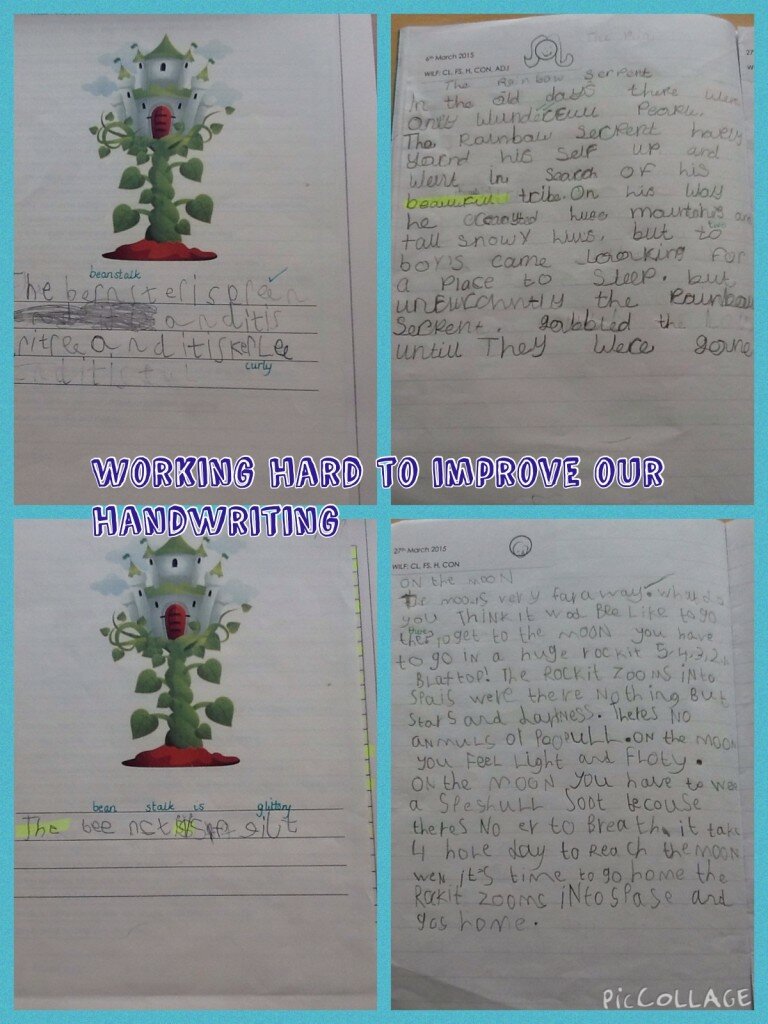 beanstalk
The
and it is
and it is
curly
The Rain
6th March 2015
WILF: CL, FS, H, CON, ADJ
The Rainbow Serpent
In the old days there were
only People.
The Rainbow Serpent
his self up and
went in search of his
beautiful tribe. On his way
he huge
tall snowy but to
boys came Looking for
a place to Sleep. but
the Rainbow
Serpent. gobbled the
untill They were gone
WORKING HARD TO IMPROVE OUR
HANDWRITING
bean stalk is glittery
The bee
27th March 2015
WILF: CL, FS, H, CON
ON the MOON
The moons very far a way. What do
you Think it wod Bee Like to go
there to get to the MOON you have
to go in a huge rockit 5,4,3,2,
The Rockit zooms iNto
Spais were there Nothing But
Stars and darkness. Theres No
anmuls or ON the MOON
you feel Light and Floty.
ON the MOON you have to
a Speshull Soot becouse
theres No er to Breath. it take
4 hole day to Reach the MOON
wen it's time to go home the
Rockit zooms iNto Spase and
gos home.
PICCOLLAGE